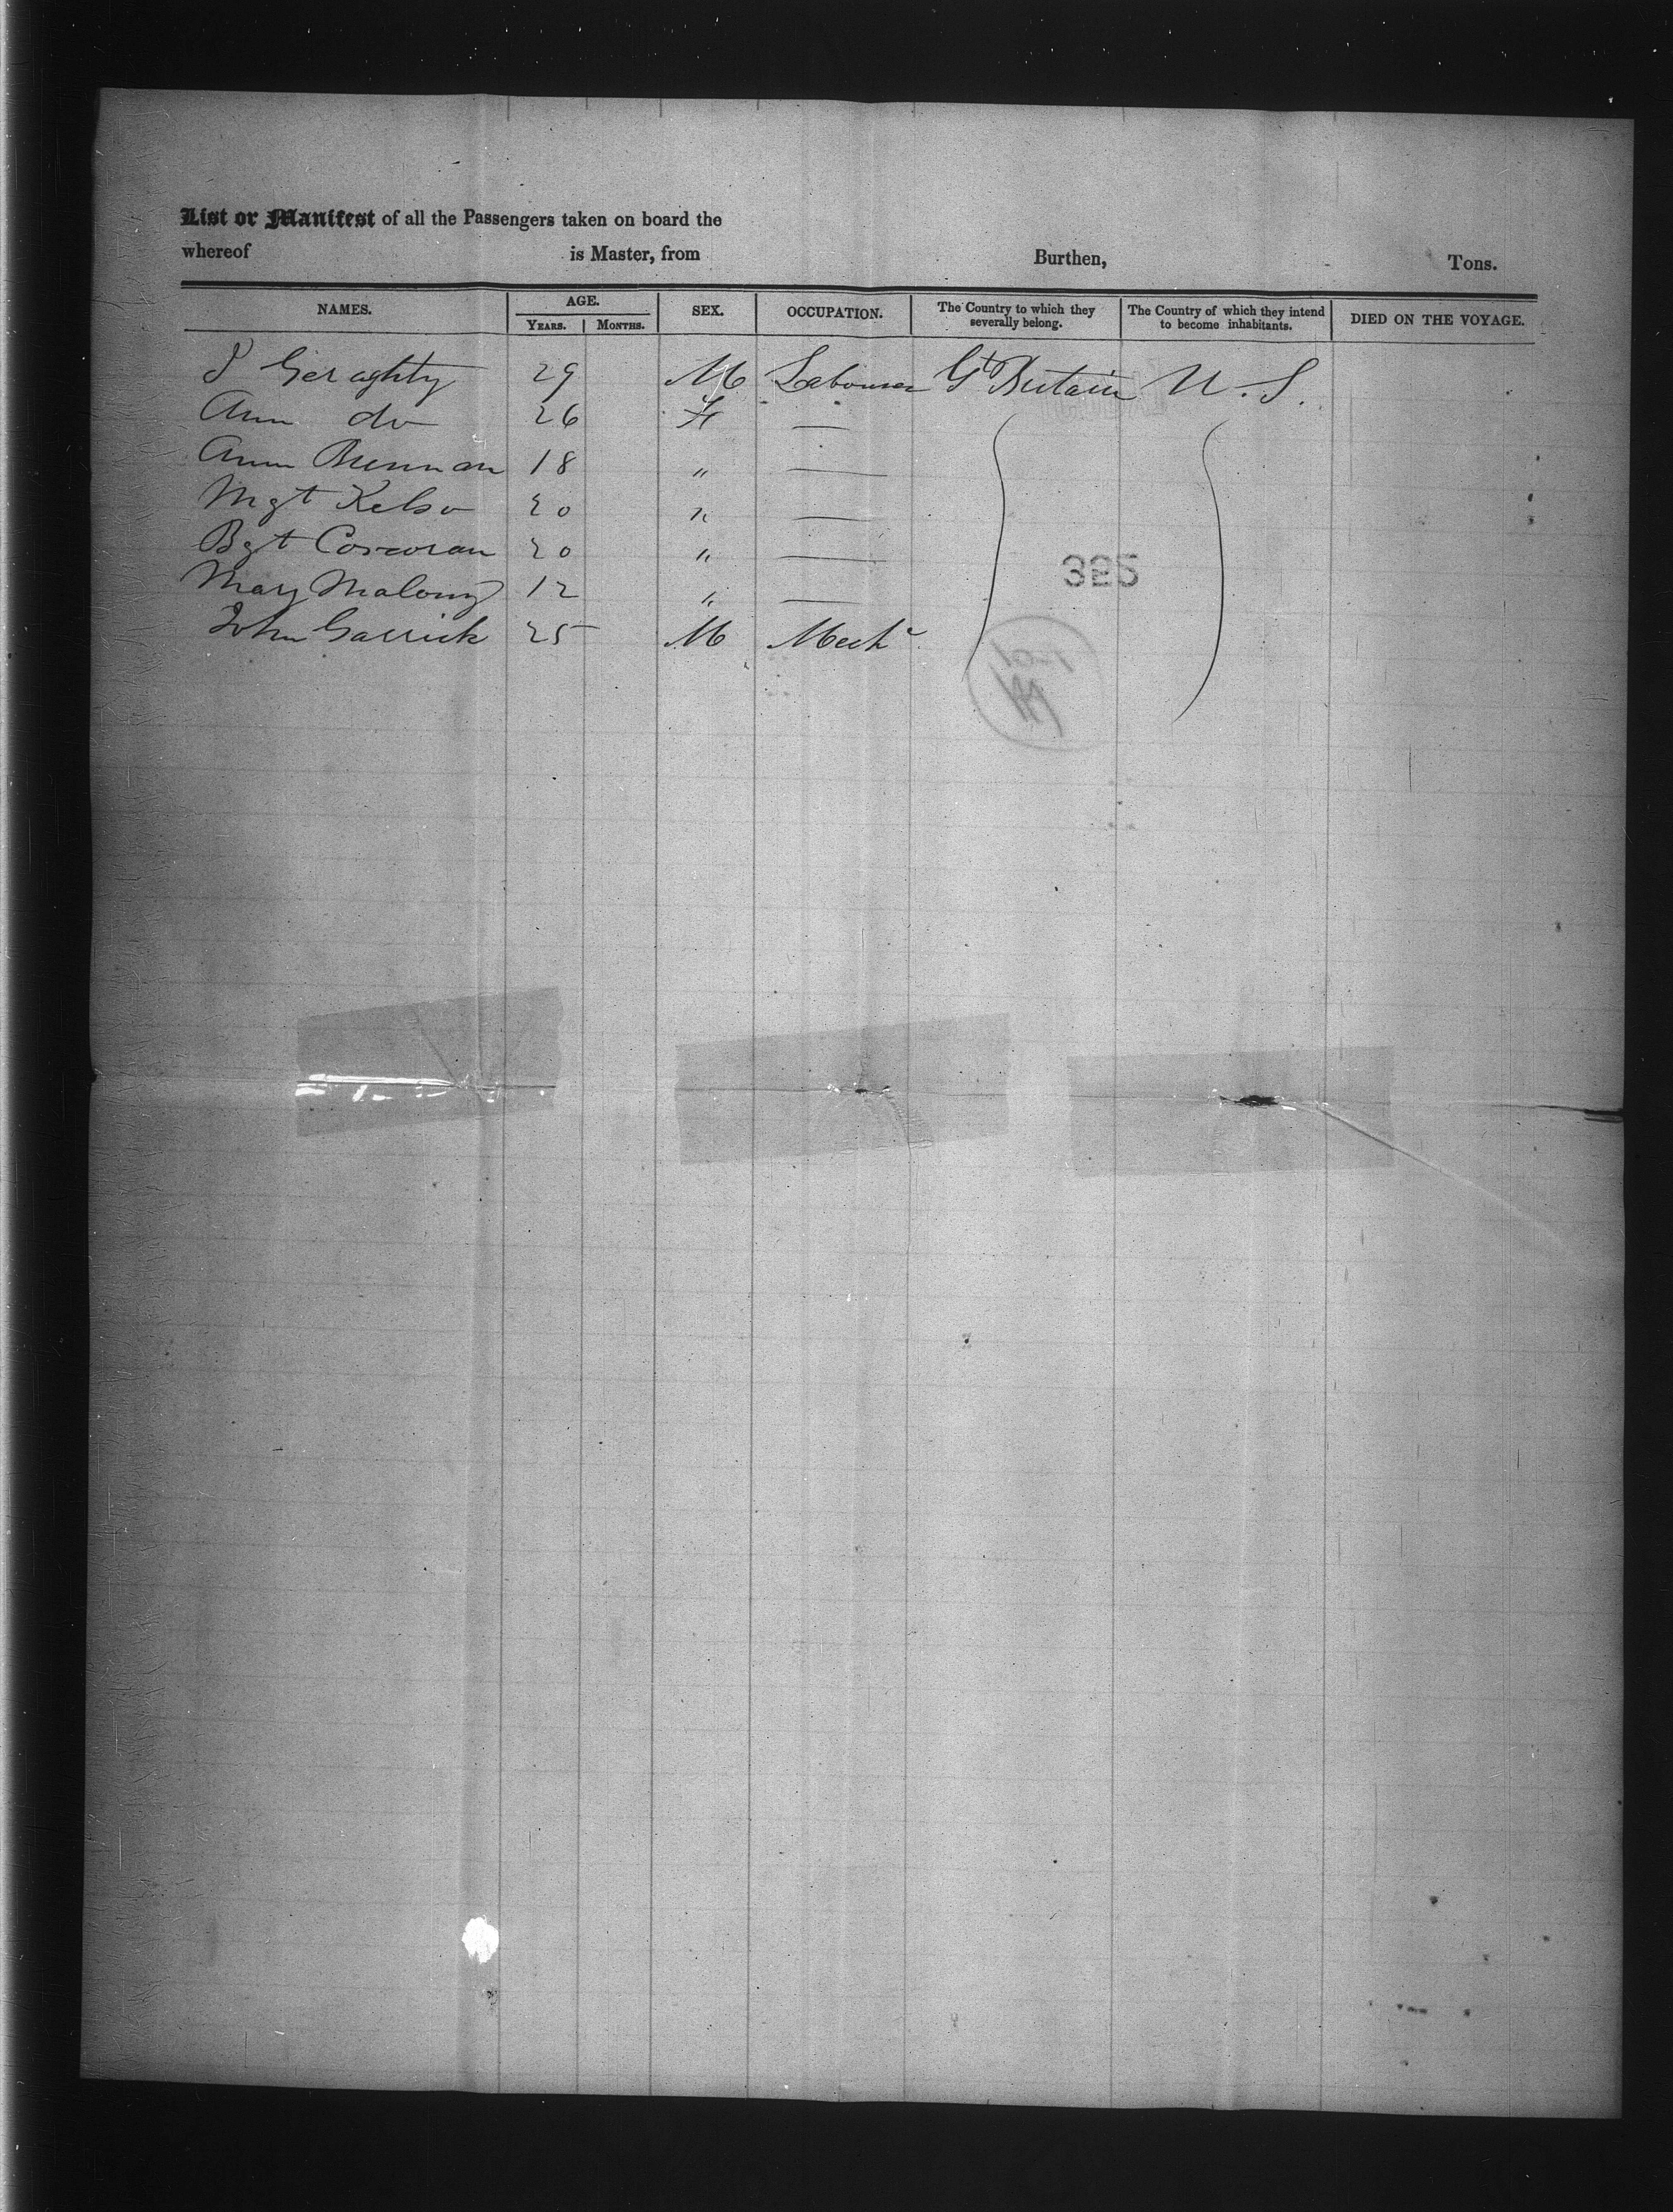 List or Manifest of all the Passengers taken on board the
whereof is Master, from Burthen, Tons.
NAMES. AGE. SEX. OCCUPATION. The Country to which they severally belong. The Country of which they intend to become inhabitants. DIED ON THE VOYAGE.
YEARS. MONTHS.
P Geraghty 29 M Labourer Gt Britain U.S.
Ann do 26 F —
Ann Brennan 18 " —
Mgt Kelso 20 " —
Bgt Corcoran 20 " —
Mary Malony 12 " —
John Garrick 25 M Mechc